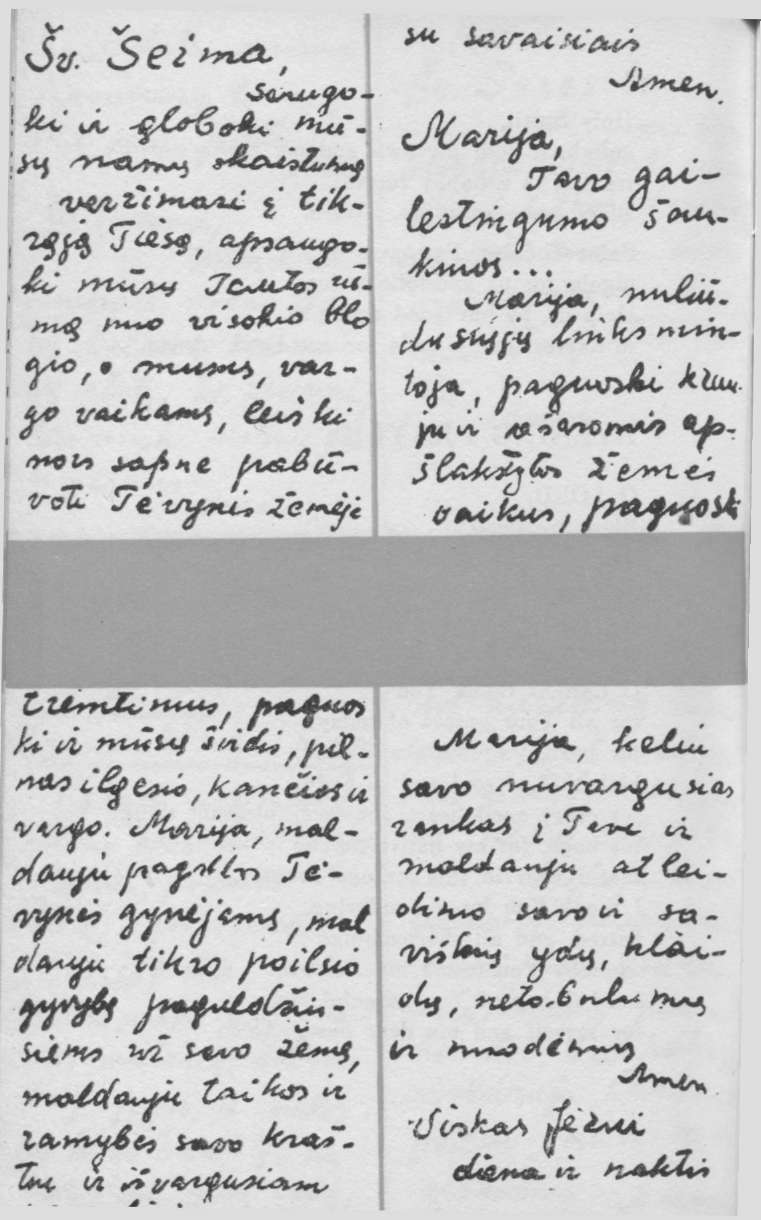 Šv. Šeima,
saugo-
ki ir globoki mū-
sų namų skaistumą
veržimąsi į tik-
rąją Tiesą, apsaugo-
ki mūsų Tautos ūž-
mą nuo visokio blo
gio, o mums, var-
go vaikams, leiski
nors sapne pabū-
voti Tėvynės žemėje
su savaisiais
Amen.
Marija,
Tavo gai-
lestingumo šau-
kiuos...
Marija, nuliū-
dusiųjų linksmin-
toja, paguoski krau-
ju ir ašaromis ap-
šlakstytos žemės
vaikus, paguoski
tremtinius, paguos
ki ir mūsų širdis, pil-
nas ilgesio, kančios ir
vargo. Marija, mal-
dauju pagalbos Tė-
vynės gynėjams, mal
dauju tikro poilsio
gyvybę paguldžiu-
siems už savo žemę,
maldauju taikos ir
ramybės savo kraš-
tui ir išvargusiam
Marija, keliu
savo nuvargusias
rankas į Tave ir
maldauju atlei-
dimo savo ir sa-
viškių ydų, klai-
dų, netobulumų
ir nuodėmių
Amen
Viskas Jėzui
diena ir naktis